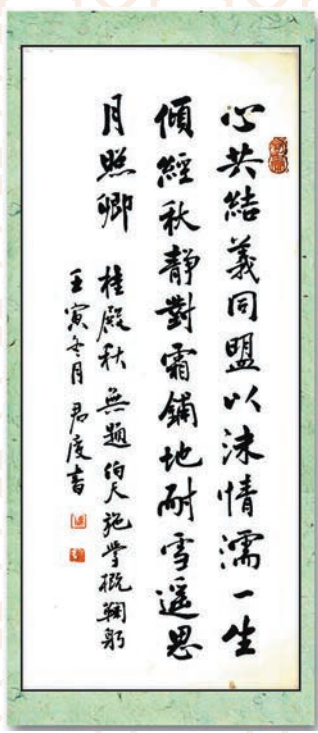 心共結義同盟以沫情濡一生
傾經秋靜對霜鋪地耐雪遥思
月照卿
桂殿秋 無題 伯天施學概鞠躬
壬寅冬月 君度書